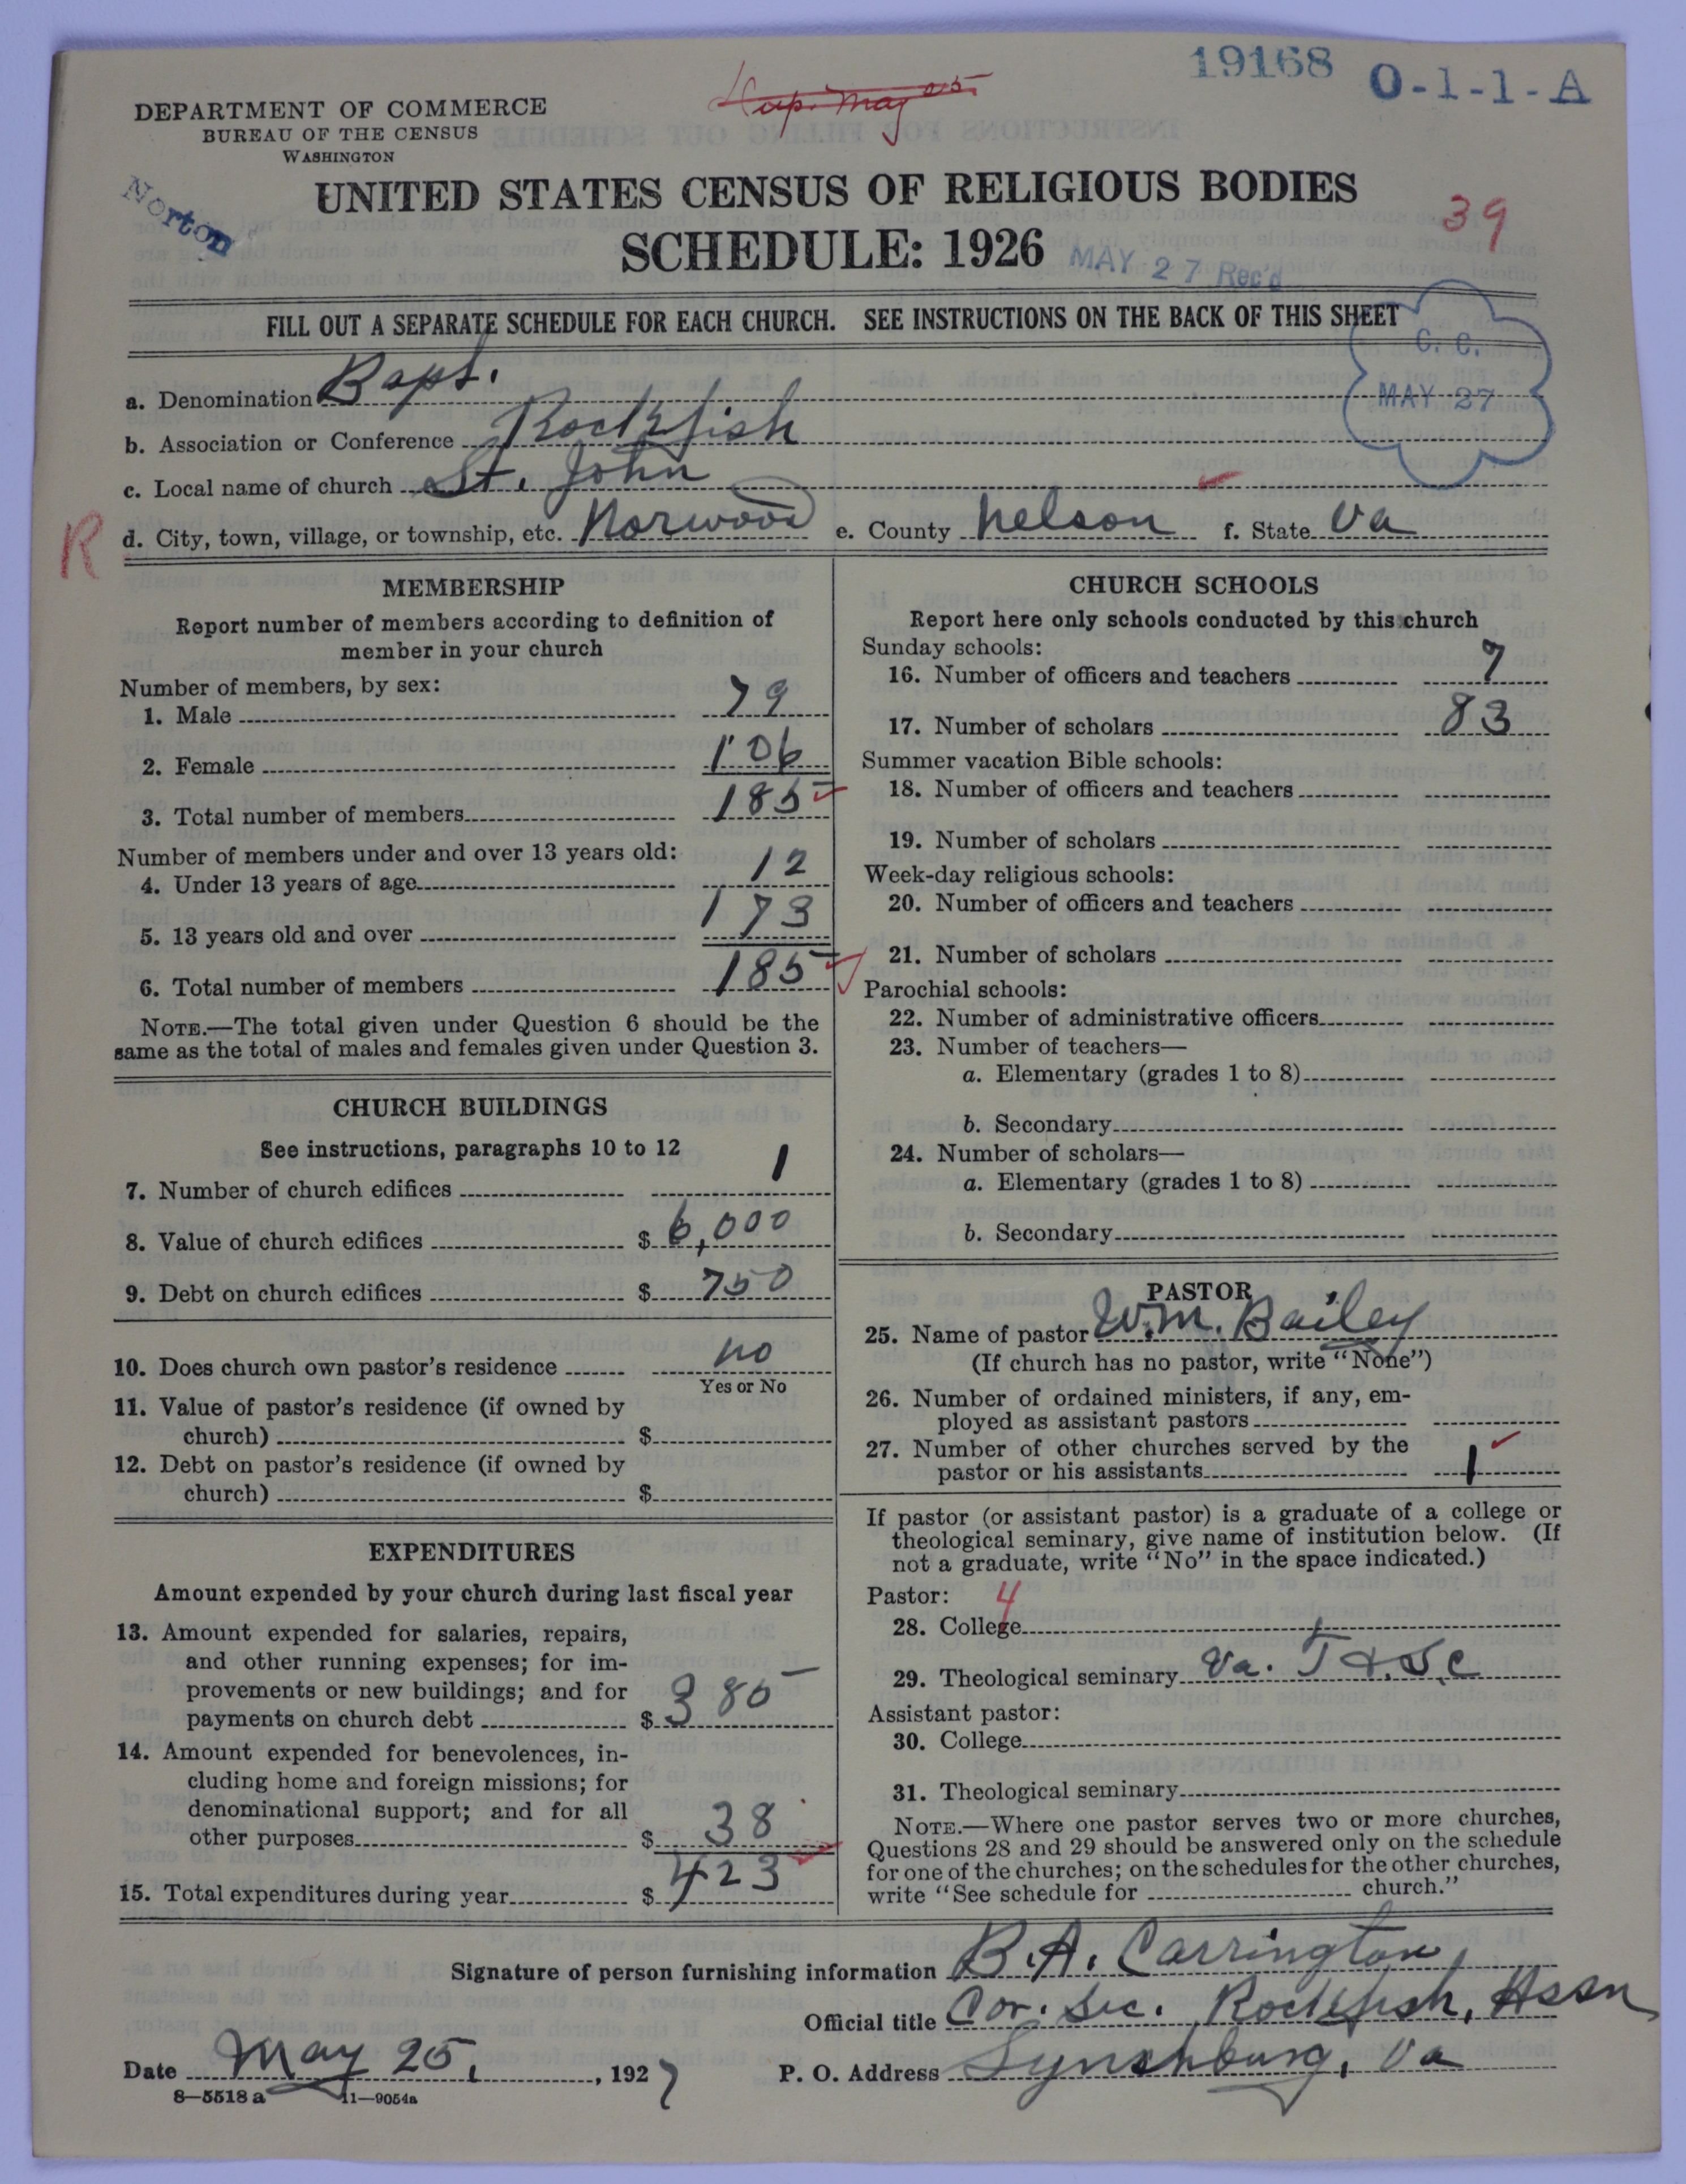 19168 O-1-1-A
Sup. May 25
DEPARTMENT OF COMMERCE
BUREAU OF THE CENSUS
WASHINGTON
Norton
UNITED STATES CENSUS OF RELIGIOUS BODIES
39
SCHEDULE: 1926
MAY 27 Rec'd
FILL OUT A SEPARATE SCHEDULE FOR EACH CHURCH. SEE INSTRUCTIONS ON THE BACK OF THIS SHEET
C. C.
MAY 27
a. Denomination Bapt.
b. Association or Conference Rockfish
c. Local name of church St. John
R
d. City, town, village, or township, etc. Norwood e. County Nelson f. State Va
MEMBERSHIP
Report number of members according to definition of
member in your church
Number of members, by sex:
1. Male 79
2. Female 106
3. Total number of members 185
Number of members under and over 13 years old:
4. Under 13 years of age 12
5. 13 years old and over 173
6. Total number of members 185
NOTE.—The total given under Question 6 should be the
same as the total of males and females given under Question 3.
CHURCH BUILDINGS
See instructions, paragraphs 10 to 12
7. Number of church edifices 1
8. Value of church edifices $ 6,000
9. Debt on church edifices $ 750
10. Does church own pastor's residence no
Yes or No
11. Value of pastor's residence (if owned by
church) $
12. Debt on pastor's residence (if owned by
church) $
EXPENDITURES
Amount expended by your church during last fiscal year
13. Amount expended for salaries, repairs,
and other running expenses; for im-
provements or new buildings; and for
payments on church debt $ 385
14. Amount expended for benevolences, in-
cluding home and foreign missions; for
denominational support; and for all
other purposes $ 38
15. Total expenditures during year $ 423
CHURCH SCHOOLS
Report here only schools conducted by this church
Sunday schools:
16. Number of officers and teachers 7
17. Number of scholars 83
Summer vacation Bible schools:
18. Number of officers and teachers
19. Number of scholars
Week-day religious schools:
20. Number of officers and teachers
21. Number of scholars
Parochial schools:
22. Number of administrative officers
23. Number of teachers—
a. Elementary (grades 1 to 8)
b. Secondary
24. Number of scholars—
a. Elementary (grades 1 to 8)
b. Secondary
PASTOR
25. Name of pastor Wm. Bailey
(If church has no pastor, write "None")
26. Number of ordained ministers, if any, em-
ployed as assistant pastors
27. Number of other churches served by the
pastor or his assistants 1
If pastor (or assistant pastor) is a graduate of a college or
theological seminary, give name of institution below. (If
not a graduate, write "No" in the space indicated.)
Pastor: 4
28. College
29. Theological seminary Va. T. & S. C
Assistant pastor:
30. College
31. Theological seminary
NOTE.—Where one pastor serves two or more churches,
Questions 28 and 29 should be answered only on the schedule
for one of the churches; on the schedules for the other churches,
write "See schedule for church."
Signature of person furnishing information B. A. Carrington
Official title Cor. Sec. Rockfish, Assn
Date May 25, 1927 P. O. Address Lynchburg, Va
8—5518 a 11—9054a